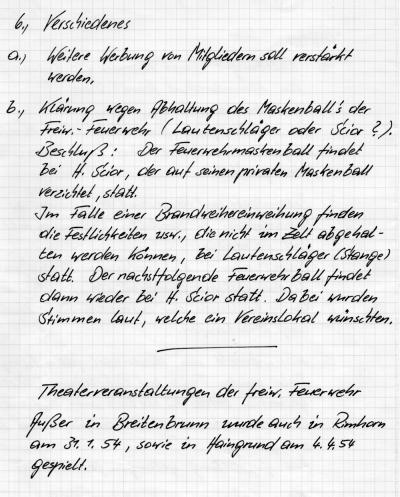 6., Verschiedenes
a., Weitere Werbung von Mitgliedern soll verstärkt
werden.
b., Klärung wegen Abhaltung des Maskenball's der
Freiw.-Feuerwehr (Lautenschläger oder Scior?).
Beschluß: Der Feuerwehrmaskenball findet
bei H. Scior, der auf seinen privaten Maskenball
verzichtet, statt.
Im Falle einer Brandweihereinweihung finden
die Festlichkeiten usw., die nicht im Zelt abgehal-
ten werden können, bei Lautenschläger (Stange)
statt. Der nachstfolgende Feuerwehrball findet
dann wieder bei H. Scior statt. Dabei wurden
Stimmen laut, welche ein Vereinslokal wünschten.
Theaterveranstaltungen der freiw. Feuerwehr
Außer in Breitenbrunn wurde auch in Rimhorn
am 31.1.54, sowie in Haingrund am 4.4.54
gespielt.